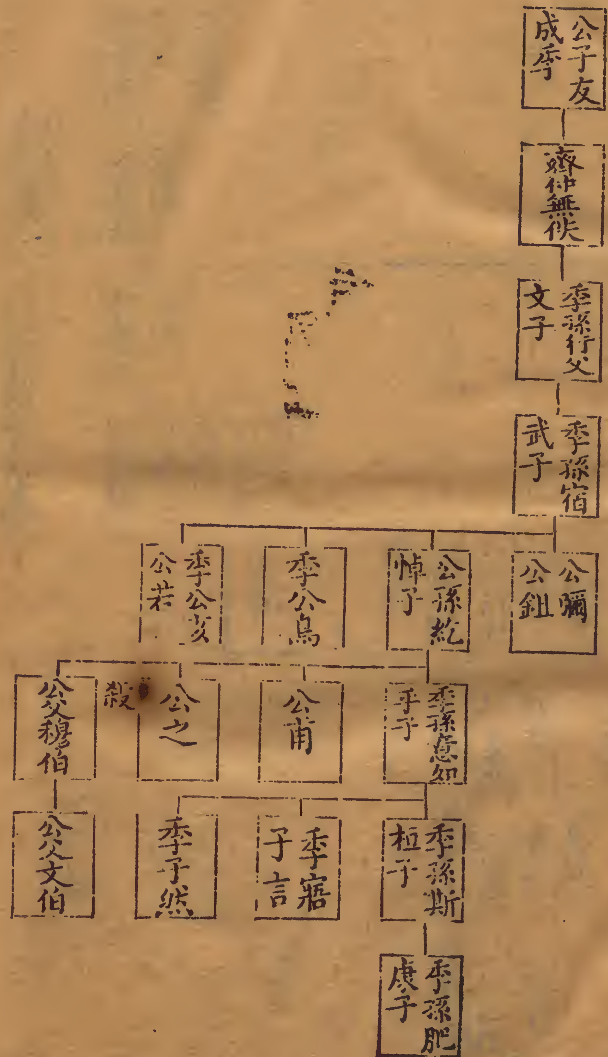 公子友
成季
齊仲無佚
季孫行父
文子
季孫宿
武子
公彌
公鉏
公孫紇
悼子
季公鳥
季公亥
公若
季孫意如
平子
公甫
公之
殺
公父穆伯
季孫斯
桓子
季寤
子言
季子然
公父文伯
季孫肥
康子